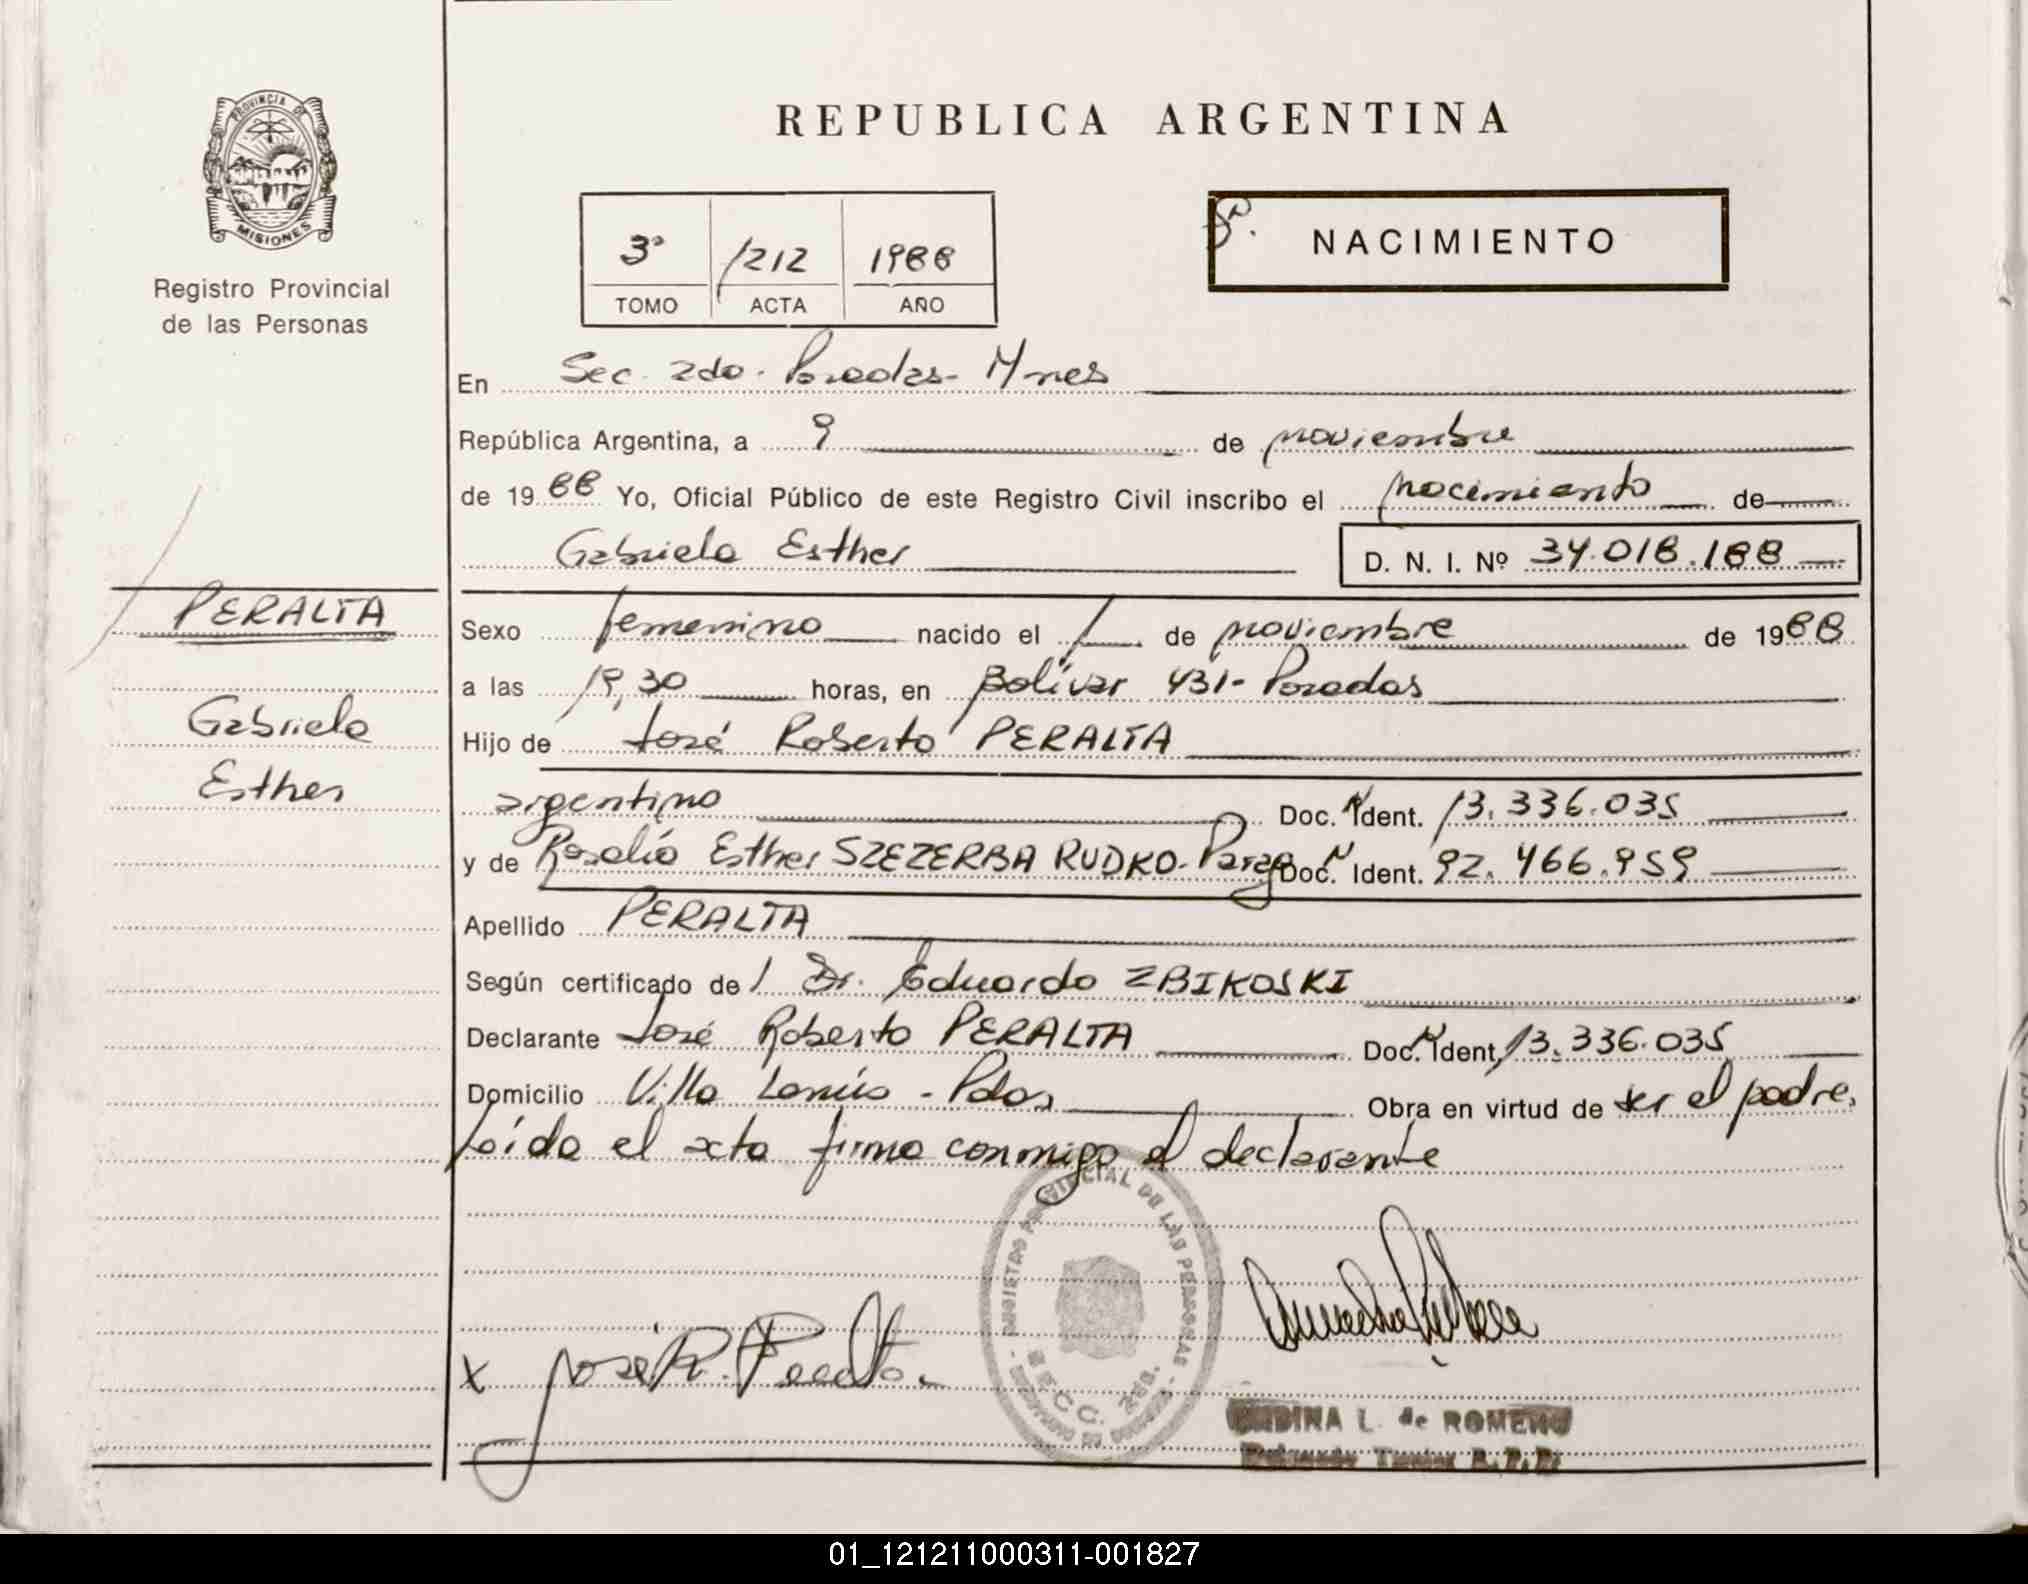 PROVINCIA DE
MISIONES
Registro Provincial
de las Personas
REPUBLICA ARGENTINA
3º /212 1988
TOMO ACTA AÑO
NACIMIENTO
En Sec. 2da. Posadas- Mnes
República Argentina, a 9 de noviembre
de 1988 Yo, Oficial Público de este Registro Civil inscribo el nacimiento de
Gabriela Esther D. N. I. Nº 34.018.188
PERALTA
Gabriela
Esther
Sexo femenino nacido el 1 de noviembre de 1988
a las 19,30 horas, en Bolívar 431- Posadas
Hijo de José Roberto PERALTA
argentino Doc. Ident. 13.336.035
y de Rosalía Esther SZEZERBA RUDKO- Parag Doc. Ident. 92.466.959
Apellido PERALTA
Según certificado del Dr. Eduardo ZBIKOSKI
Declarante José Roberto PERALTA Doc. Ident. 13.336.035
Domicilio Villa Lanús - Pdas Obra en virtud de ser el padre,
Leída el acta firma conmigo el declarante
REGISTRO PROVINCIAL DE LAS PERSONAS
SECC. 2da.
x José R. Peralta
L. de ROMERO
01_121211000311-001827